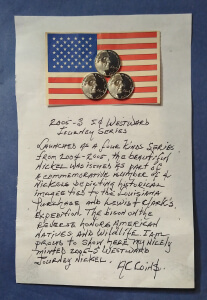 2005-S 5¢ Westward
Journey Series
Launched as a four kinds series
from 2004-2005, the beautiful
nickel was issued as part of
a commemorative number of 4
nickels depicting historical
images tied to the Louisiana
Purchase and Lewis & Clark's
Expedition. The bison on the
reverse honors American
Natives and wildlife. I am
proud to show here my nicely
minted 2005-S Westward
Journey Nickel.
AC Coin$